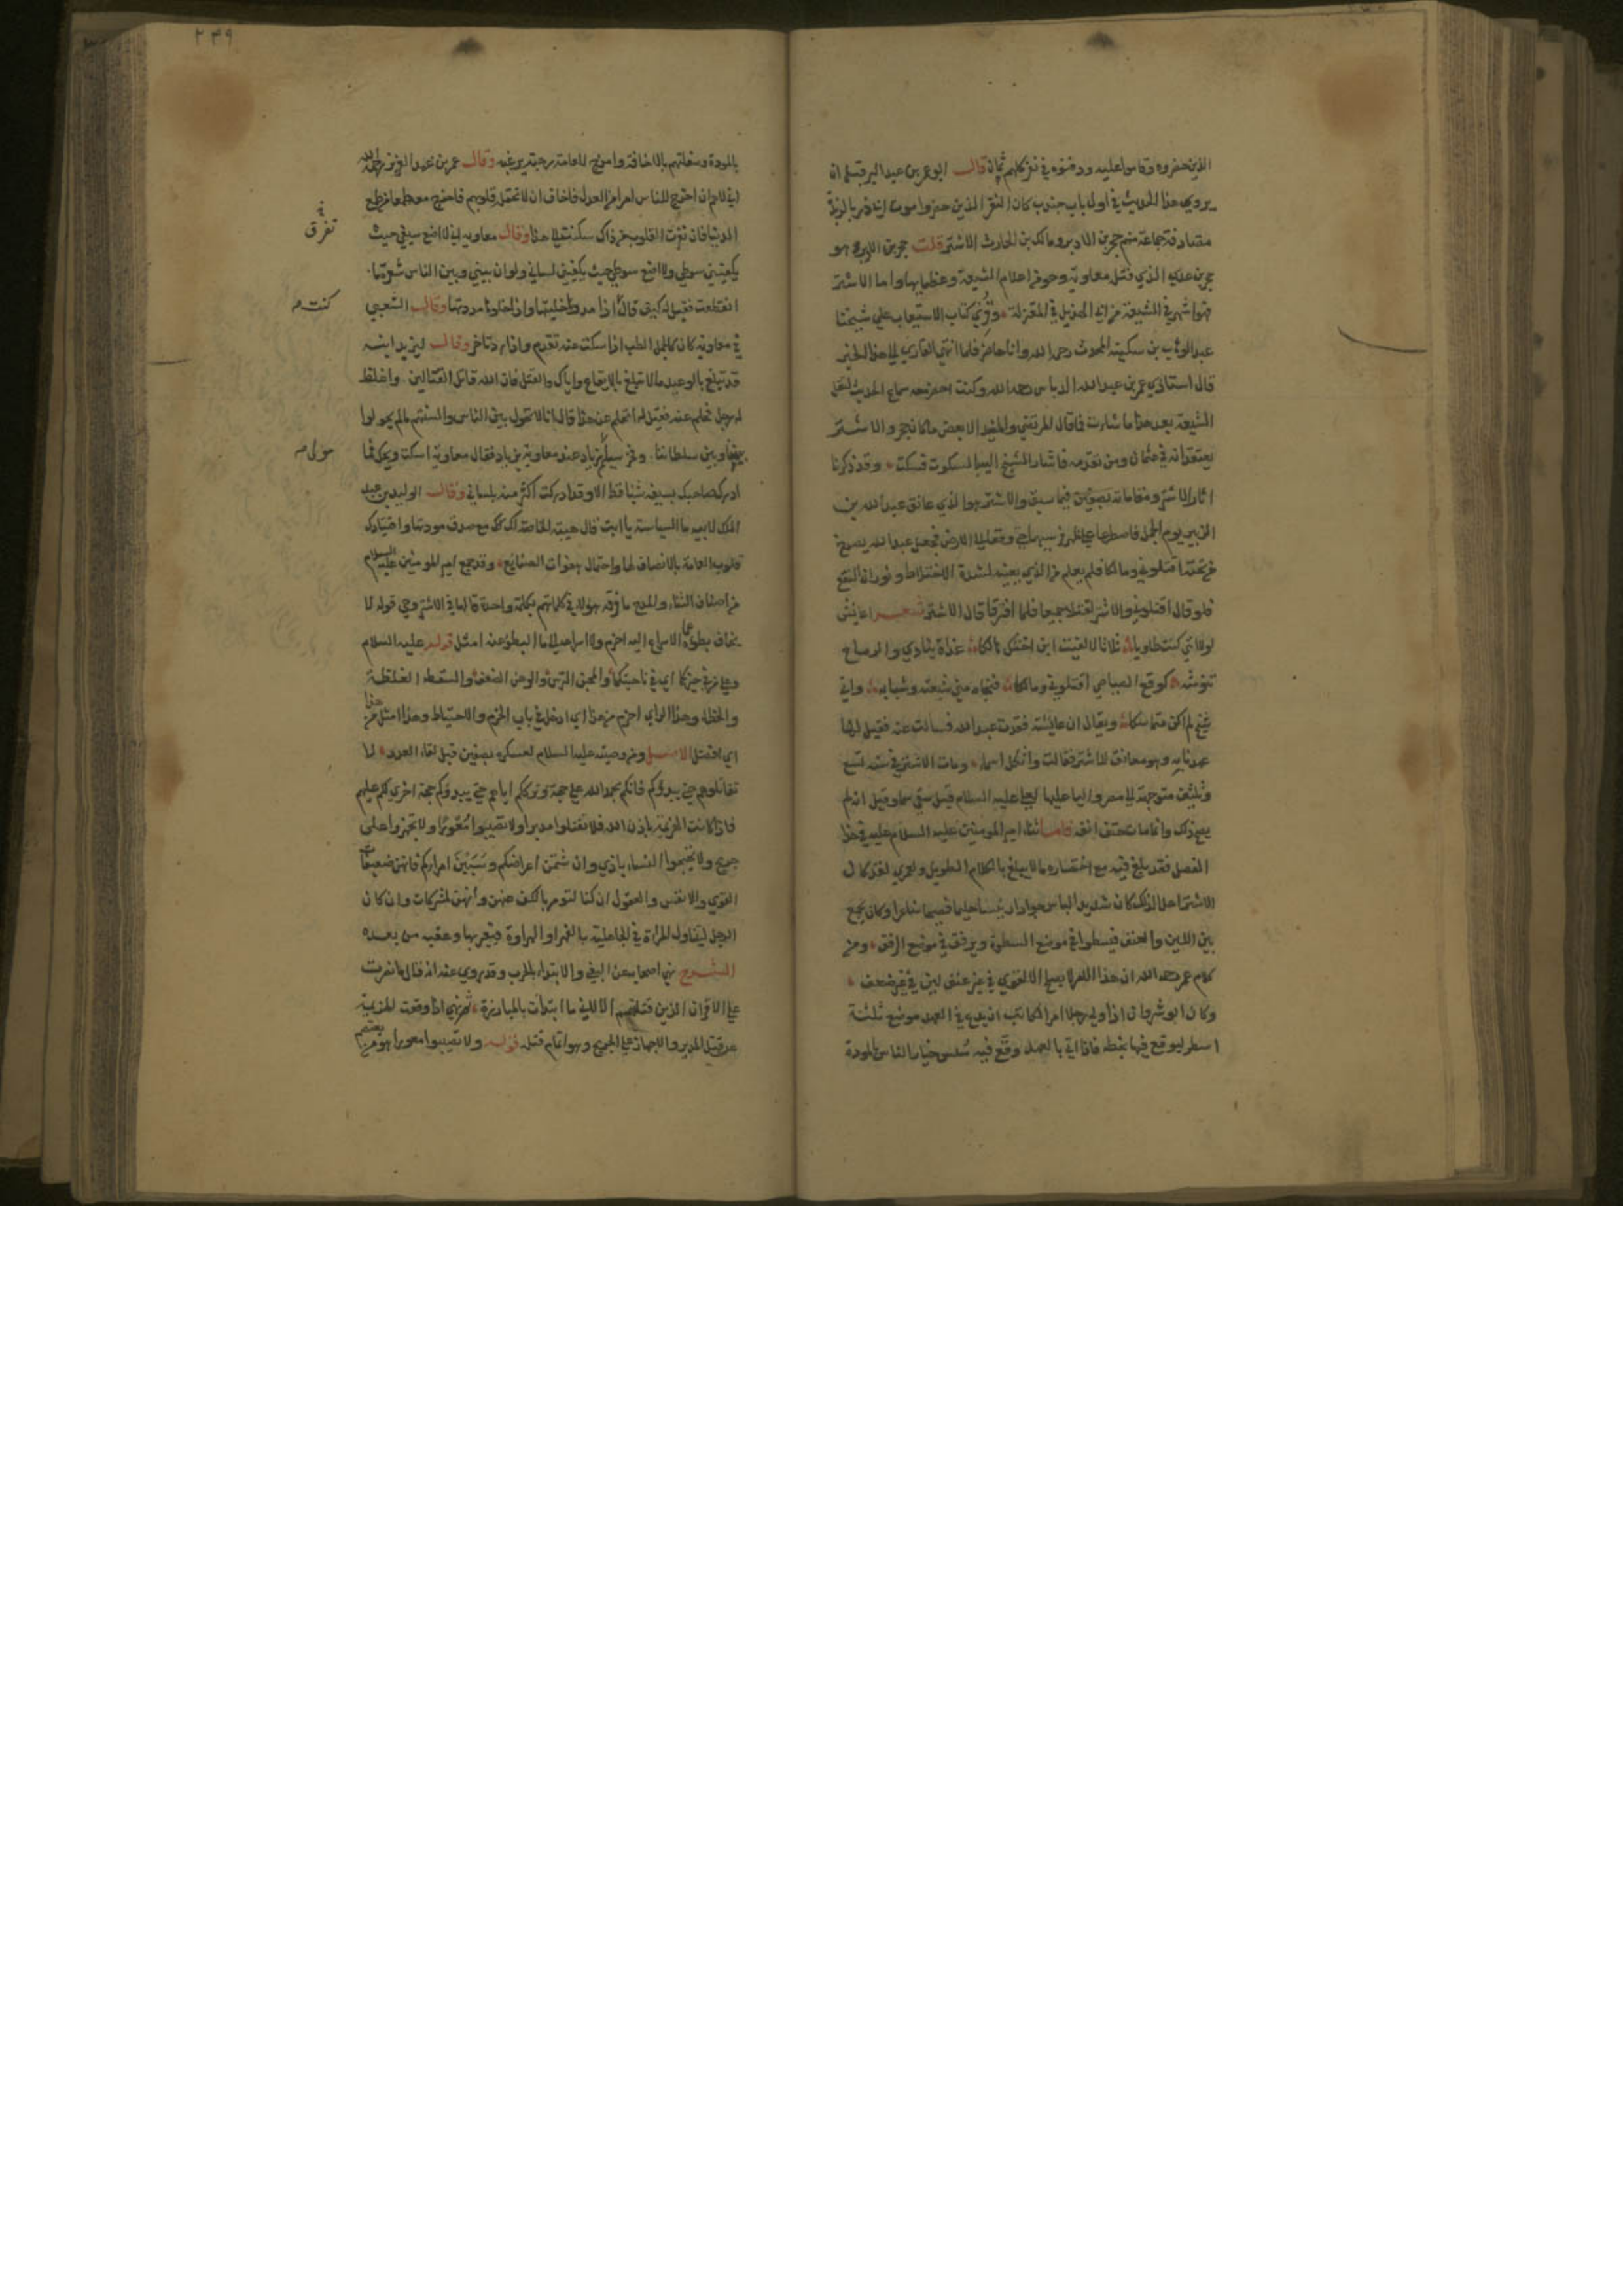 الذين حضروه وقاموا عليه ودفنوه في نفر كلهم ثمان قالــ ابو عمر بن عبد البر قبل ان
يروي هذا الحديث في اول باب جندب كان النفر الذين حضروا موت ابي ذر بالربذة
مصادفة جماعة منهم حجر بن الادبر ومالك بن الحارث الاشتر قلت حجر بن الادبر هو
حجر بن عدي الذي قتله معاوية وهو من اعلام الشيعة وعظمايها واما الاشتر
فهو اشهر في الشيعة من ابي الهذيل في المعتزلة وقرئ كتاب الاستيعاب على شيخنا
عبد الوهاب بن سكينة المحدث رحمه الله وانا حاضر فلما انتهى القاري الى هذا الخبر
قال استاذي عمر بن عبد الله الدباس رحمه الله وكنت احضر معه سماع الحديث لتقل
الشيعة بعد هذا ما شاءت فما قال المرتضى والمفيد الا بعض ما كان حجر والاشتر
يعتقدانه في عثمان ومن تقدمه فاشار الشيخ اليه بالسكوت فسكت وقد ذكرنا
اثار الاشتر ومقاماته بصفين فيما سبق والاشتر هو الذي عانق عبد الله بن
الزبير يوم الجمل فاصطرعا على ظهر فرسيهما حتى وقعا الى الارض فجعل عبد الله يصرخ
من تحته اقتلوني ومالكا فلم يعلم من الذي يعنيه لشدة الاختلاط وثوران النقع
فلو قال اقتلوني والاشتر لقتلا جميعا فلما افترقا قال الاشتر شعـــر اعايش
لولا انني كنت طاويا ثلاثا لالفيت ابن اختك هالكا غداة ينادي والرماح
تنوشه كوقع الصياصي اقتلوني ومالكا فنجاه مني شبعه وشبابه واني
شيخ لم اكن متماسكا ويقال ان عايشة فقدت عبد الله فسالت عنه فقيل لها
عهدنا به وهو معانق للاشتر فقالت واثكل اسماء ومات الاشتر في سنة تسع
وثلثين متوجها الى مصر واليا عليها لعلي عليه السلام قيل سقي سما وقيل انه لم
يصح ذلك وانما مات حتف انفه فامــا ثناء امير المومنين عليه السلام عليه في هذا
الفصل فقد بلغ فيه مع اختصاره ما لا يبلغ بالكلام الطويل ولعمري لقد كان
الاشتر اهلا لذلك كان شديد الباس جوادا رئيسا حليما فصيحا شاعرا وكان يجمع
بين اللين والعنف فيسطوا في موضع السطوة ويرفق في موضع الرفق ومن
كلام عمر رحمه الله ان هذا الامر لا يصلح الا لقوي في غير عنف لين في غير ضعف
وكان انو شروان اذا ولى رجلا امر الكاتب ان يدع في العهد موضع ثلثة
اسطر ليوقع فيها بخطه فاذا اتي بالعهد وقع فيه سس خيار الناس بالمودة
٢٣٩
بالمودة وسفلتهم بالاخافة وامزج للعامة رهبة برغبة وقالــ عمر بن عبد العزيز رحمه الله
اني لاهم ان اخرج للناس امرا من العدل فاخاف ان لا تحتمله قلوبهم فاخرج معه طمعا من طمع
الدنيا فان نفرت القلوب من ذاك سكنت الى هذا وقالــ معاوية اني لا اضع سيفي حيث
يكفيني سوطي ولا اضع سوطي حيث يكفيني لساني ولو ان بيني وبين الناس شعرة ما
انقطعت فقيل له كيف قال اذا مدوها خليتها واذا خلوها مددتها وقالــ الشعبي
في معاوية كان كالجمل الطب اذا سكت عنه تقدم واذا رد تاخر وقالــ ليزيد ابنه
قد تبلغ بالوعيد ما لا تبلغ بالايقاع واياك والقتل فان الله قاتل القتالين واغلظ
له رجل فحلم عنه فقيل له اتحلم عن هذا قال انا لا نحول بين الناس والسنتهم ما لم يحولوا
بيننا وبين سلطاننا وفخر سليم بن زياد عند معاوية بن زياد فقال معاوية اسكت ويحك فما
ادرك صاحبك بسيفه شيئا قط الا وقد ادركت اكثر منه بلساني وقالــ الوليد بن عبد
الملك لابيه ما السياسة يا ابت قال هيبة الخاصة لك مع صدق مودتها واقتيادك
قلوب العامة بالانصاف لها واحتمال هفوات الصنايع وقد جمع امير المومنين عليه السلام
من اصناف الثناء والمدح ما فرقه هولاء في كلماتهم بكلمة واحدة قالها في الاشتر وهي قوله لا
يخاف بطوه عما الاسراع اليه احزم ولا اسراعه الى ما البطو عنه امثل قولــه عليه السلام
وعلى من في حيزكما اي في ناحيتكما والمجن الترس والوهن الضعف والسقط الغلطة
والخطا وهذا الراي احزم من هذا اي ادخل في باب الحزم والاحتياط وهذا امثل من هذا
اي افضل الاصــل ومن وصيته عليه السلام لعسكره بصفين قبل لقاء العدو لا
تقاتلوهم حتى يبدؤكم فانكم بحمد الله على حجة وترككم اياهم حتى يبدؤكم حجة اخرى لكم عليهم
فاذا كانت الهزيمة باذن الله فلا تقتلوا مدبرا ولا تصيبوا معورا ولا تجهزوا على
جريح ولا تهيجوا النساء باذى وان شتمن اعراضكم وسببن امراءكم فانهن ضعيفات
القوي والانفس والعقول ان كنا لنومر بالكف عنهن وانهن لمشركات وان كان
الرجل ليتناول المراة في الجاهلية بالفهر او الهراوة فيعير بها وعقبه من بعده
الشـــرح نهى اصحابه عن البغي والابتداء بالحرب وقد روي عنه انه قال ما نصرت
على الاقران الذين قتلتهم الا لاني ما ابتدات بالمبارزة ثم نهى اذا وقعت الهزيمة
عن قتل المدبر والاجهاز على الجريح وهو اتمام قتله قولــه ولا تصيبوا معورا هو من يعتصم
تفرق
كنت